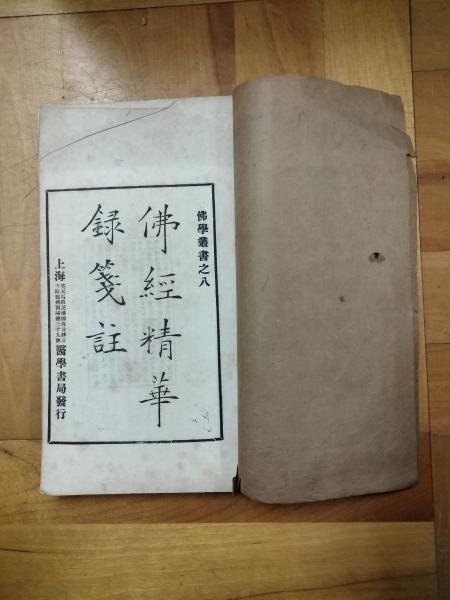 佛學叢書之八
佛經精華
録箋註
上海
醫學書局發行